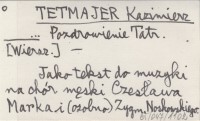 TETMAJER Kazimierz
... Pozdrowienie Tatr.
[Wiersz.] —
Jako tekst do muzyki
na chór męski Czesława
Marka i (osobno) Zygm. Noskowskiego.